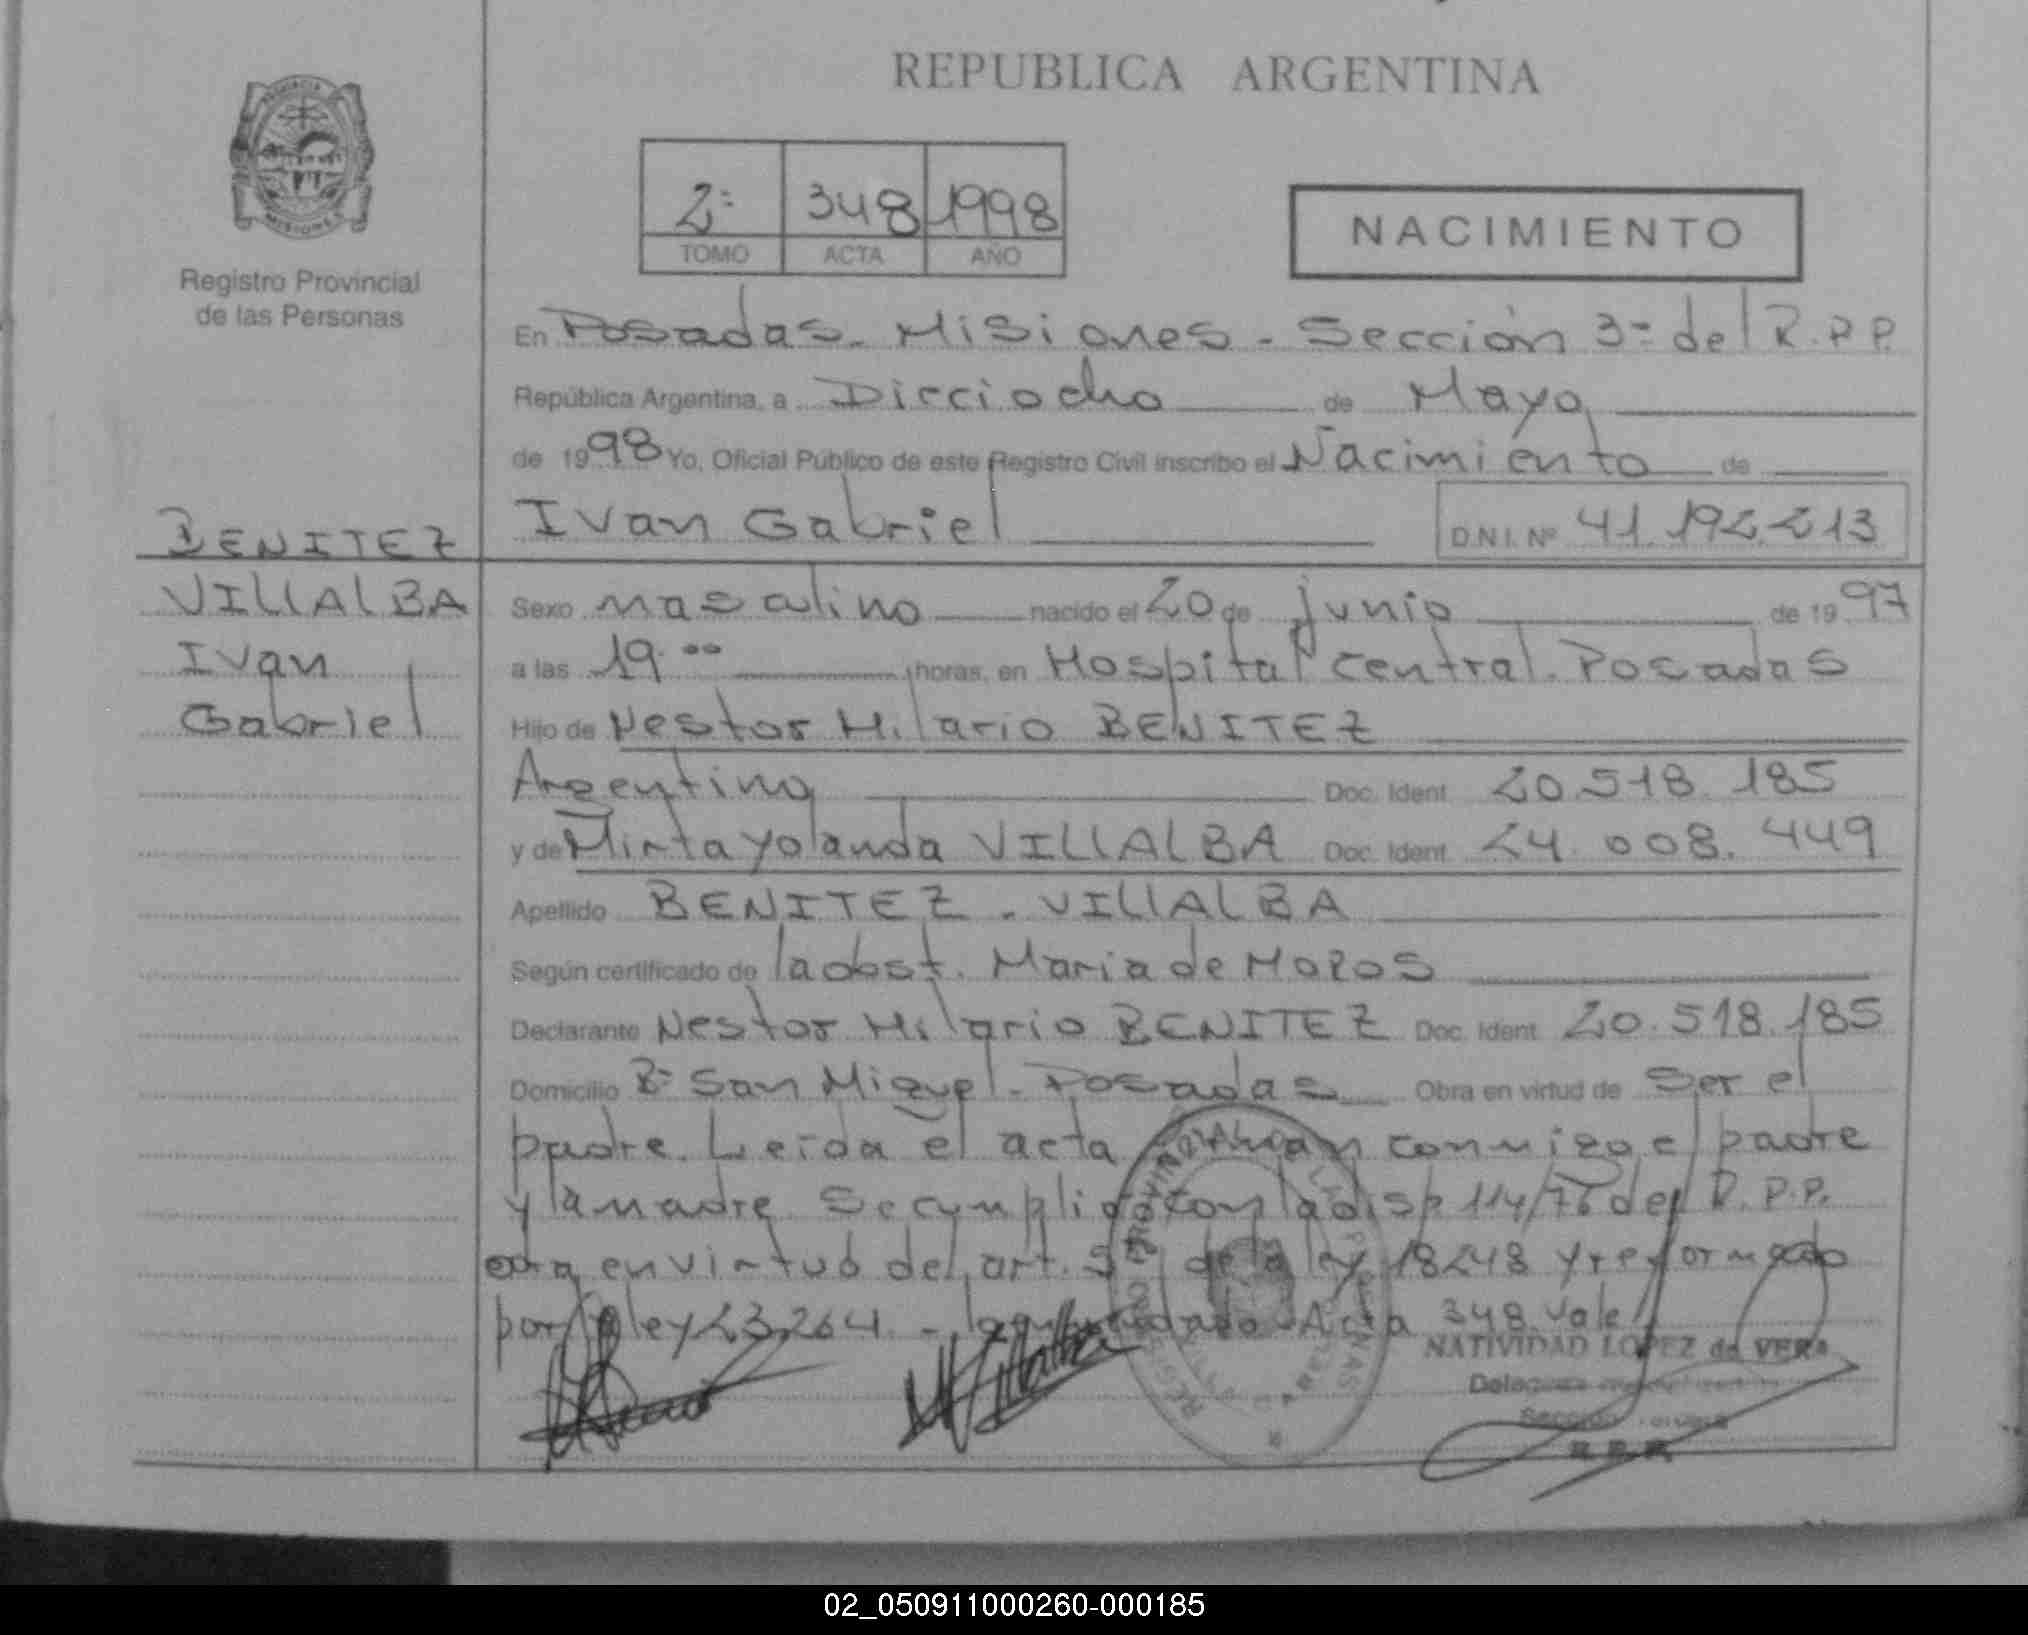 REPUBLICA ARGENTINA
PROVINCIA
MISIONES
Registro Provincial
de las Personas
2º 348 1998
TOMO ACTA AÑO
NACIMIENTO
En Posadas. Misiones - Sección 3º del R.P.P.
República Argentina, a Dieciocho de Mayo
de 1998 Yo, Oficial Público de este Registro Civil inscribo el Nacimiento de
Ivan Gabriel D.N.I. Nº 41.192.213
BENITEZ
VILLALBA
Ivan
Gabriel
Sexo masculino nacido el 20 de junio de 1997
a las 19.00 horas, en Hospital Central. Posadas
Hijo de Nestor Hilario BENITEZ
Argentino Doc. Ident. 20.518.185
y de Mirta Yolanda VILLALBA Doc. Ident. 24.008.449
Apellido BENITEZ - VILLALBA
Según certificado de la obst. Maria de MOROS
Declarante Nestor Hilario BENITEZ Doc. Ident. 20.518.185
Domicilio Bº San Miguel - Posadas Obra en virtud de Ser el
padre. Leída el acta conmigo el padre
y la madre. Se cumplió con la disp 114/76 del R.P.P.
en virtud del art. de la ley 18248 y reformado
por ley 23.264. - Acta 348. Vale
NATIVIDAD LOPEZ de VERA
Delegada
Sección
R.P.P.
02_050911000260-000185